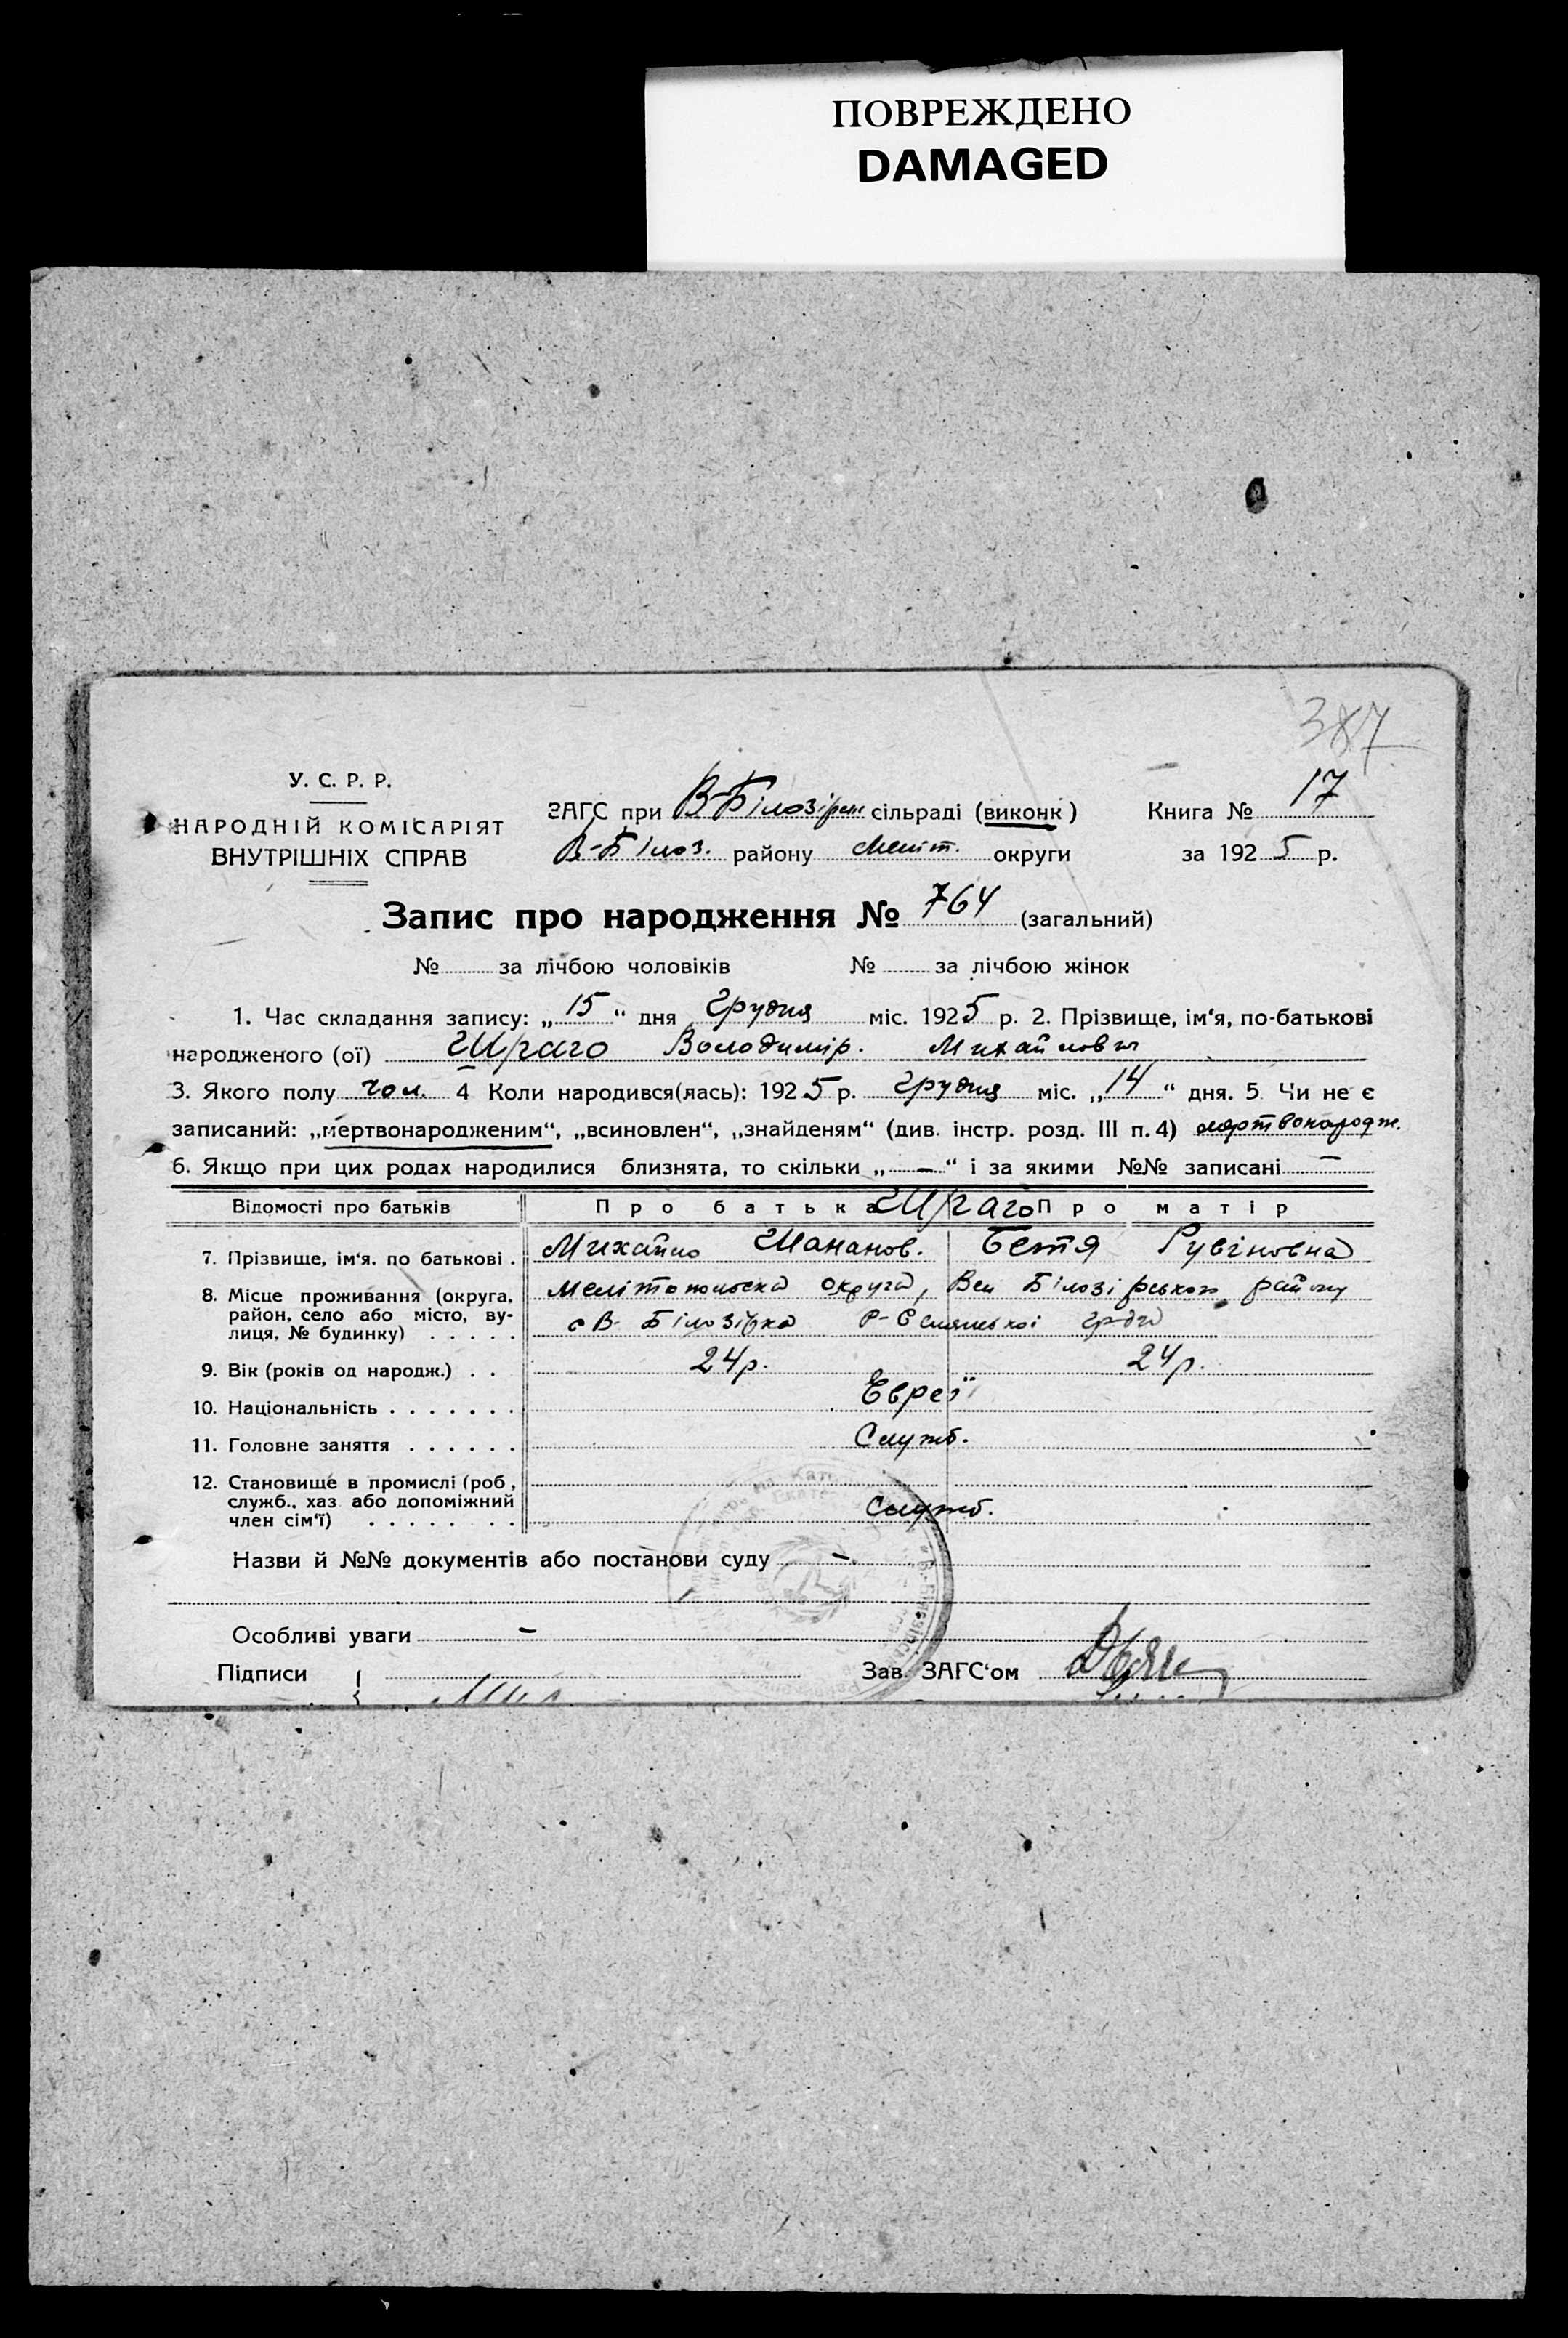 ПОВРЕЖДЕНО
DAMAGED
387
У. С. Р. Р.
НАРОДНІЙ КОМІСАРІЯТ
ВНУТРІШНІХ СПРАВ
ЗАГС при В-Білозірск сільраді (виконк)
В-Білоз. району Меліт. округи
Книга № 17
за 1925 р.
Запис про народження № 764 (загальний)
№ за лічбою чоловіків № за лічбою жінок
1. Час складання запису: „15“ дня Грудня міс. 1925 р. 2. Прізвище, ім‘я, по-батькові
народженого (ої) Шраго Володимір. Михайлович
3. Якого полу чол. 4 Коли народився(лась): 1925 р. Грудня міс. „14“ дня. 5 Чи не є
записаний: „мертвонародженим“, „всиновлен“, „знайденям“ (див. інстр. розд. III п. 4) мертвонародж.
6. Якщо при цих родах народилися близнята, то скільки „ – “ і за якими №№ записані –
Відомості про батьків Про батька Шраго Про матір
7. Прізвище, ім‘я. по батькові . Михайло Шананов. Бетя Рувіновна
8. Місце проживання (округа, Мелітопольска округа, Вел Білозірського району
район, село або місто, ву- с В- Білозірка
лиця, № будинку) . . . . .
9. Вік (років од народж.) . . 24 р. 24 р.
10. Національність . . . . . . . Євреї
11. Головне заняття . . . . . . Служб.
12. Становище в промислі (роб ,
служб., хаз або допоміжний Служб.
член сім‘ї) . . . . . . . .
Назви й №№ документів або постанови суду –
Особливі уваги –
Підписи Зав. ЗАГС‘ом